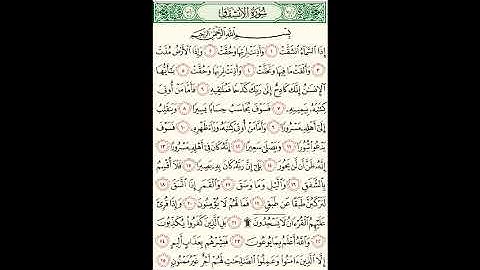 سُورَةُ الِانشِقَاقِ
بِسْمِ اللَّهِ الرَّحْمَٰنِ الرَّحِيمِ
إِذَا السَّمَاءُ انشَقَّتْ ١ وَأَذِنَتْ لِرَبِّهَا وَحُقَّتْ ٢ وَإِذَا الْأَرْضُ مُدَّتْ
٣ وَأَلْقَتْ مَا فِيهَا وَتَخَلَّتْ ٤ وَأَذِنَتْ لِرَبِّهَا وَحُقَّتْ ٥ يَا أَيُّهَا
الْإِنسَانُ إِنَّكَ كَادِحٌ إِلَىٰ رَبِّكَ كَدْحًا فَمُلَاقِيهِ ٦ فَأَمَّا مَنْ أُوتِيَ
كِتَابَهُ بِيَمِينِهِ ٧ فَسَوْفَ يُحَاسَبُ حِسَابًا يَسِيرًا ٨ وَيَنقَلِبُ
إِلَىٰ أَهْلِهِ مَسْرُورًا ٩ وَأَمَّا مَنْ أُوتِيَ كِتَابَهُ وَرَاءَ ظَهْرِهِ ١٠ فَسَوْفَ
يَدْعُو ثُبُورًا ١١ وَيَصْلَىٰ سَعِيرًا ١٢ إِنَّهُ كَانَ فِي أَهْلِهِ مَسْرُورًا ١٣
إِنَّهُ ظَنَّ أَن لَّن يَحُورَ ١٤ بَلَىٰ إِنَّ رَبَّهُ كَانَ بِهِ بَصِيرًا ١٥ فَلَا أُقْسِمُ
بِالشَّفَقِ ١٦ وَاللَّيْلِ وَمَا وَسَقَ ١٧ وَالْقَمَرِ إِذَا اتَّسَقَ ١٨
لَتَرْكَبُنَّ طَبَقًا عَن طَبَقٍ ١٩ فَمَا لَهُمْ لَا يُؤْمِنُونَ ٢٠ وَإِذَا قُرِئَ
عَلَيْهِمُ الْقُرْآنُ لَا يَسْجُدُونَ ۩ ٢١ بَلِ الَّذِينَ كَفَرُوا يُكَذِّبُونَ
٢٢ وَاللَّهُ أَعْلَمُ بِمَا يُوعُونَ ٢٣ فَبَشِّرْهُم بِعَذَابٍ أَلِيمٍ ٢٤
إِلَّا الَّذِينَ آمَنُوا وَعَمِلُوا الصَّالِحَاتِ لَهُمْ أَجْرٌ غَيْرُ مَمْنُونٍ ٢٥